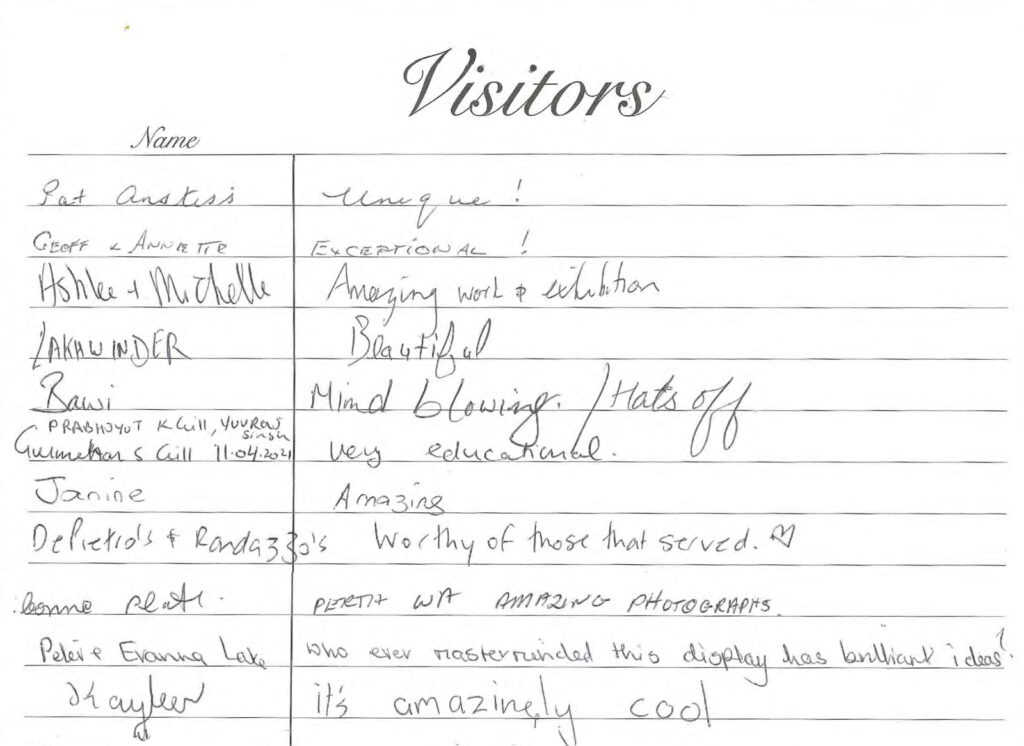 Visitors
Name
Pat Anstiss Unique!
GEOFF & ANNETTE EXCEPTIONAL!
Ashlee + Michelle Amazing work & exhibition
LAKHWINDER Beautiful
Bawi Mind blowing. / Hats off
PRABHJYOT K Gill, YUVRAJ
Singh
Gurmehar S Gill 11.04.2021 very educational.
Janine Amazing
DePietro's & Randazzo's Worthy of those that served. ♡
PERTH WA AMAZING PHOTOGRAPHS.
Peter & Evanna Lake who ever masterminded this display has brilliant ideas!
Kayleen it's amazingly cool